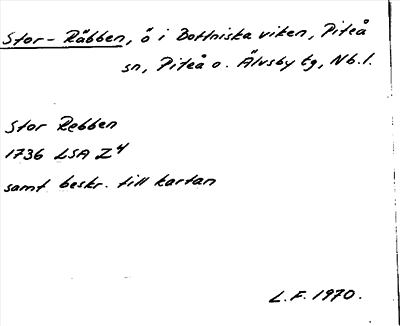 Stor-Räbben, ö i Bottniska viken, Piteå
sn, Piteå o. Älvsby tg, Nb.l.
Stor Rebben
1736 LSA Z4
samt beskr. till kartan
L.F. 1970.